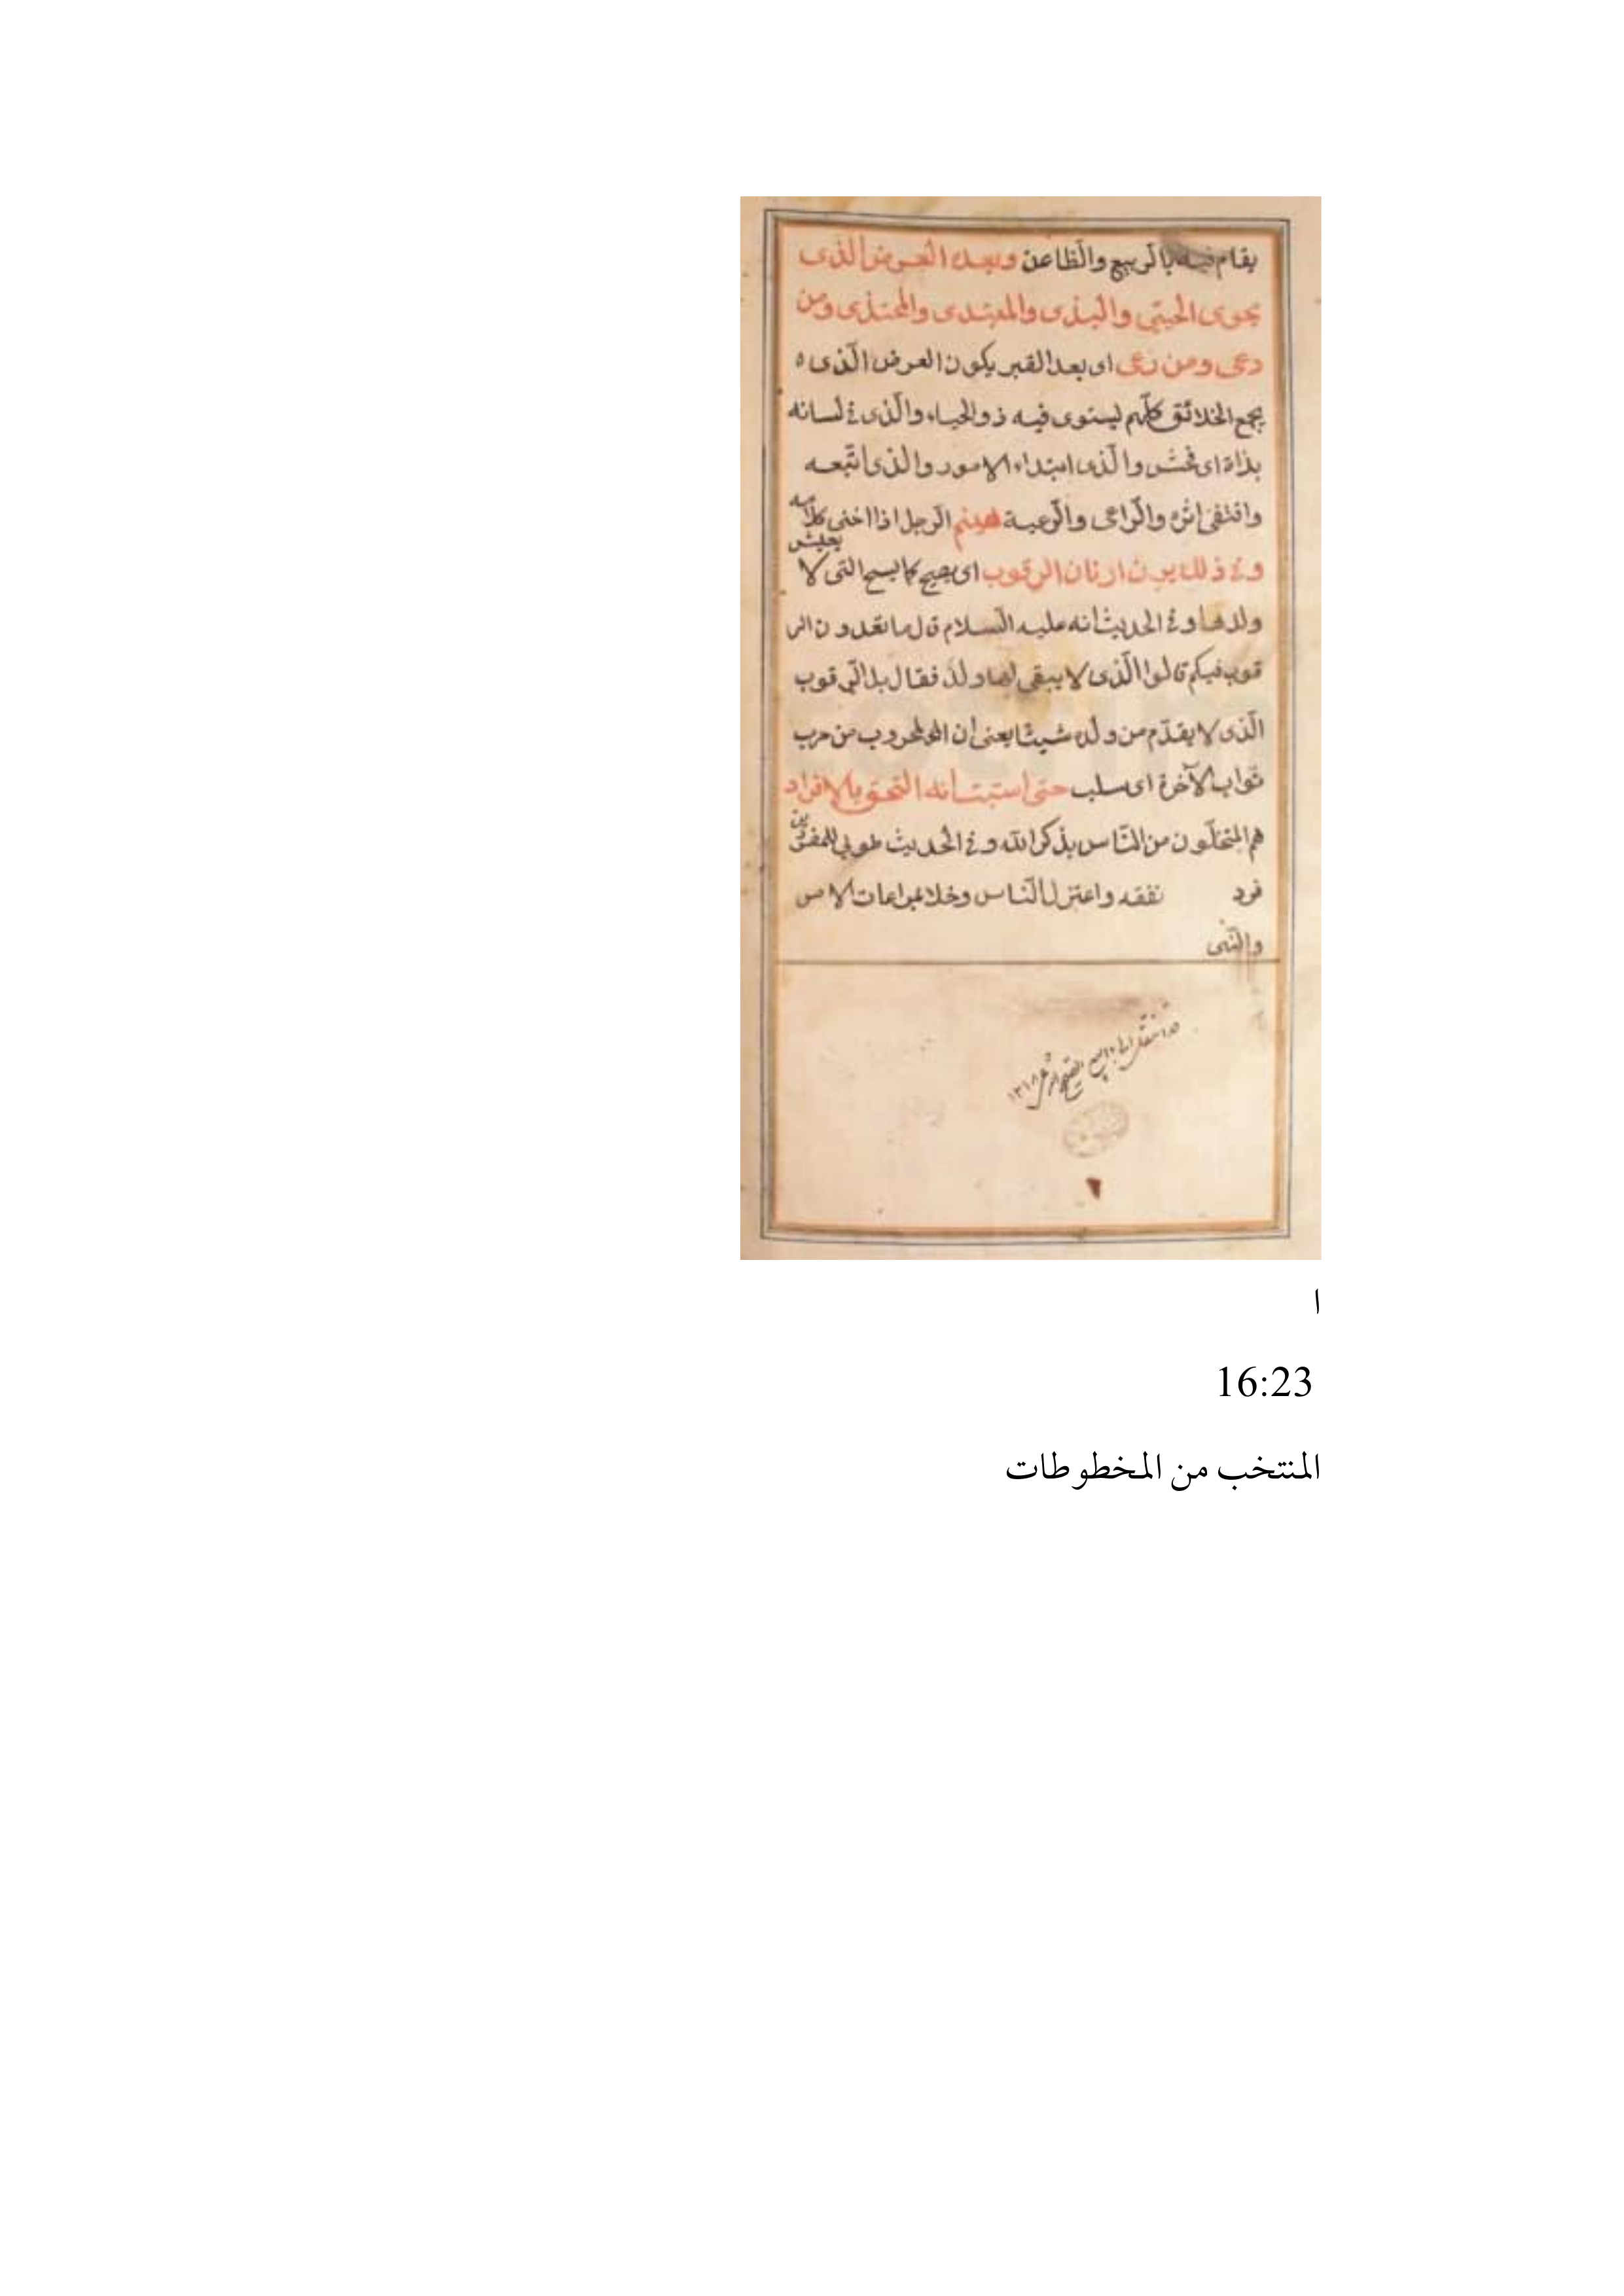 يقام فيه بالربيع والظاعن وبعده العرض الذى
يحوى الحيّي والبذى والمبتدى والمحتذى ومن
رعى ومن رُعى اى بعد القبر يكون العرض الّذى ه
يجمع الخلائق كلّهم ليستوى فيه ذو الحياء والّذى فى لسانه
بذاة اى فحش والّذى ابتداء الامور والذى اتّبعه
واقتفى اثره والرّاعى والرّعية هينم الرجل اذا اخفى كلامه
وفى ذلك يرن ارنان الرقوب اى يصيح كما يسيح التى لا يعيش
ولدها وفى الحديث انه عليه السّلام قال ما تعدون الر
قوب فيكم قالوا الّذى لا يبقى لها ولد فقال بل الرّقوب
الّذى لا يقدّم من ولده شيئا يعنى ان المحروب من حرب
ثواب الآخرة اى سلب حتى استبنت انه التحق بالافراد
هم المتخلّون من النّاس بذكر الله وفى الحديث طوبى للمفردين
فرد تفقه واعتزل النّاس وخلا بمراعات الامر
والنّهى
١٣١٨
ا
16:23
المنتخب من المخطوطات